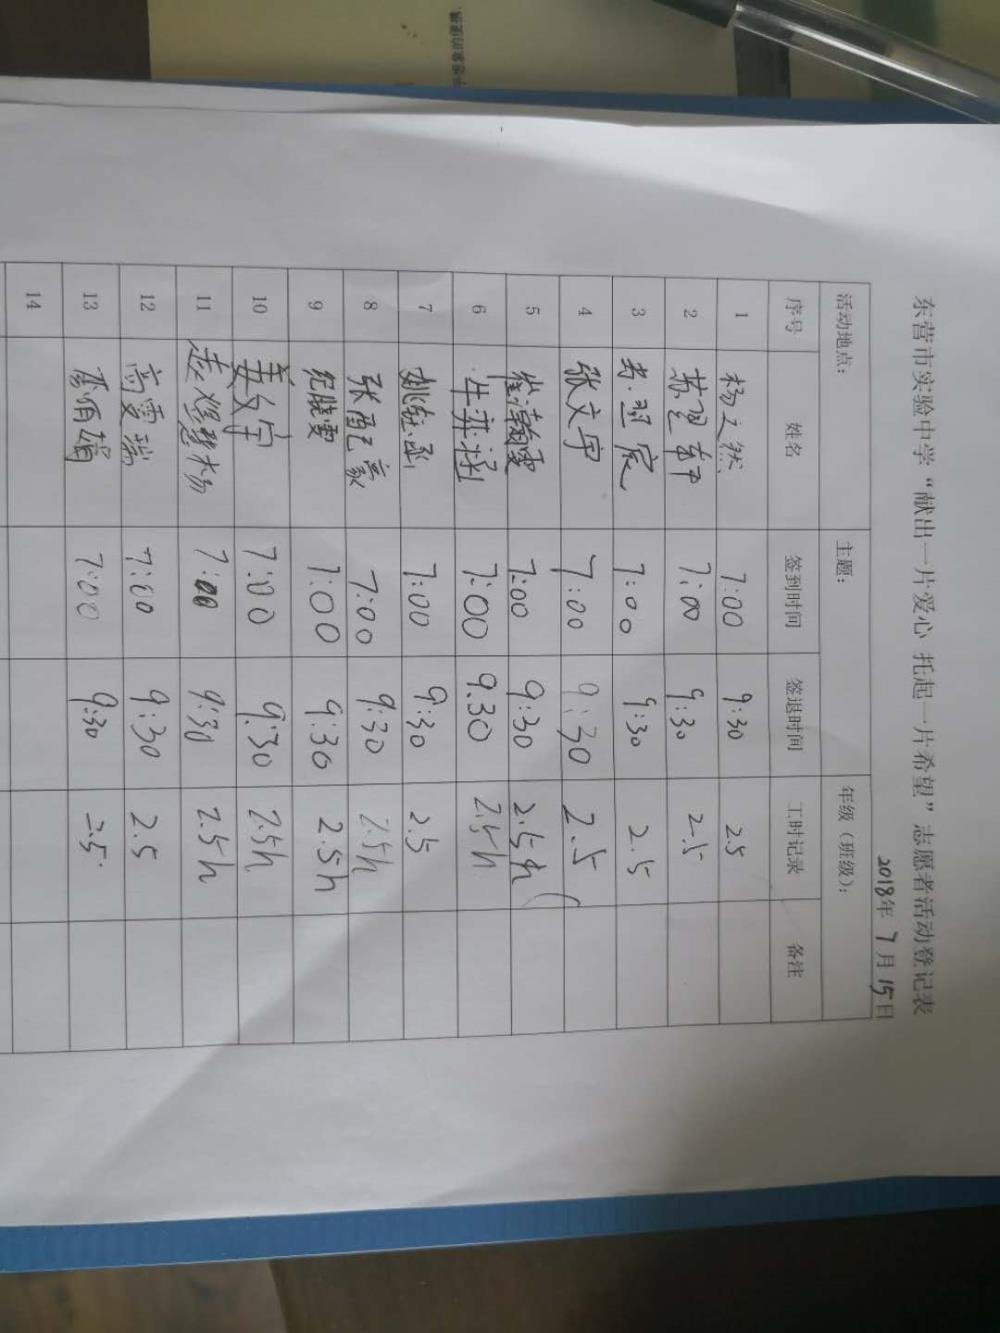 东营市实验中学“献出一片爱心 托起一片希望”志愿者活动登记表
2018年 7月 15日
活动地点： 主题： 年级（班级）：
序号 姓名 签到时间 签退时间 工时记录 备注
1 杨文然 7:00 9:30 2.5
2 7:00 9:30 2.5
3 7:00 9:30 2.5
4 张文宇 7:00 9:30 2.5
5 崔瀚雯 7:00 9:30 2.5h
6 牛莊涵 7:00 9.30 2.5h
7 7:00 9:30 2.5
8 张配豪 7:00 9:30 2.5h
9 纪晓雯 7:00 9:30 2.5h
10 姜文宇 7:00 9:30 2.5h
11 7:00 9:30 2.5h
12 高雪瑞 7:00 9:30 2.5
13 7:00 9:30 2.5
14